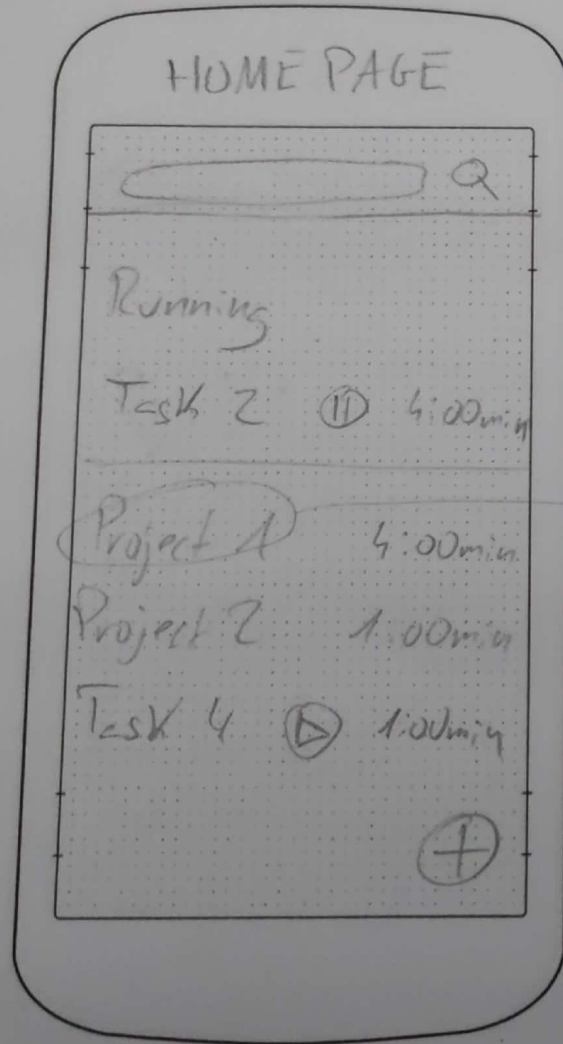 HOME PAGE
Running
Task 2 4:00min
Project 1 4:00min
Project 2 1:00min
Task 4 1:00min